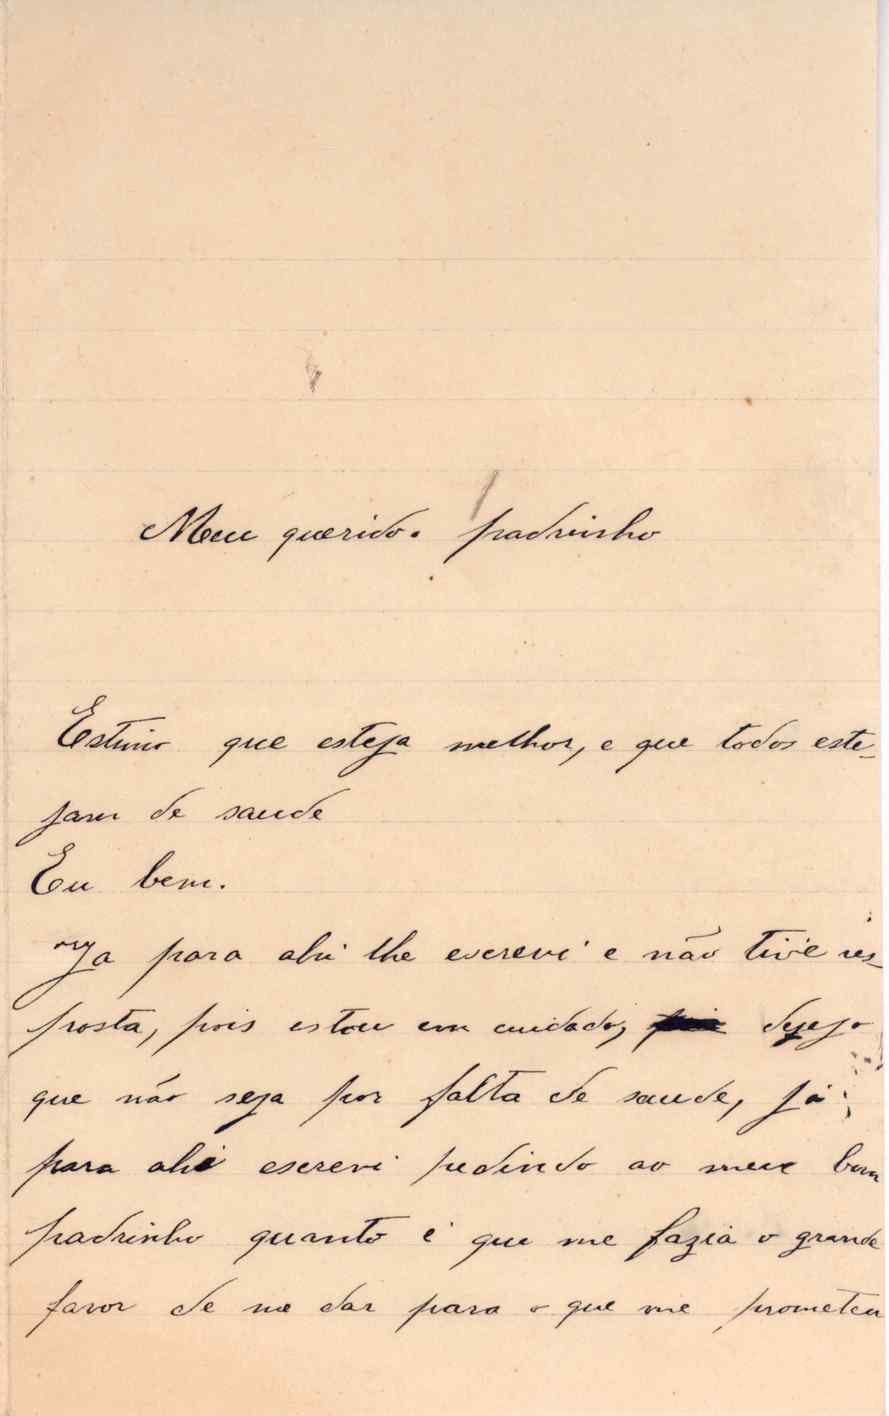 Meu querido. padrinho
Estimo que esteja melhor, e que todos este-
jam de saude
Eu bem.
Ja para ahi lhe escrevi e não tive res-
posta, pois estou em cuidado, desejo
que não seja por falta de saude, já
para ahi escrevi pedindo ao meu bom
padrinho quanto é que me fazia o grande
favor de me dar para o que me prometeu